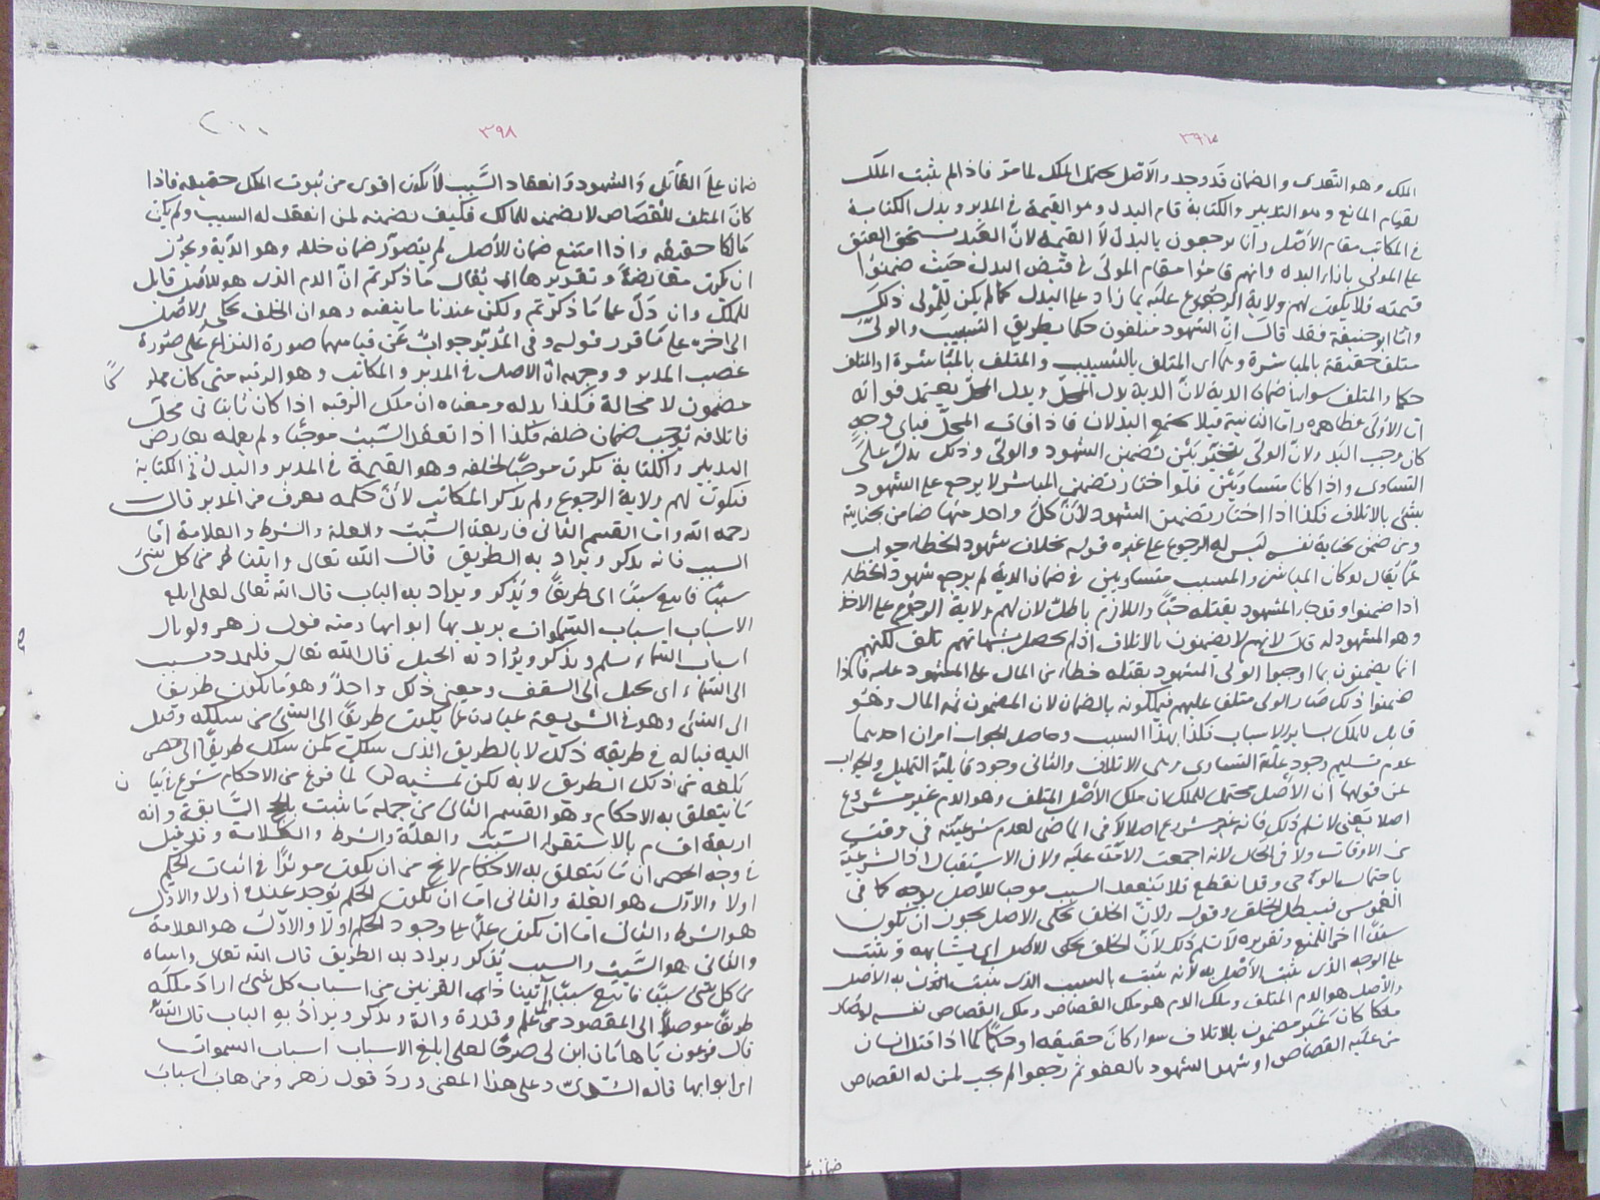 ٣٩٧
الملك وهو التعدى والضمان قد وجد والاصل يحتمل الملك لما مر فاذا لم يثبت الملك
لقيام المانع وهو التدبير والكتابة قام البدل وهو القيمة فى المدبر وبدل الكتابة
فى المكاتب مقام الاصل وانما يرجعون بالبدل لا القيمة لان العبد يستحق العتق
على المولى بازاء البدل وانهم قاموا مقام المولى فى قبض البدل حيث ضمنوا
قيمته فلا يكون لهم ولاية الرجوع عليه بما زاد على البدل كما لم يكن للمولى ذلك
واما ابو حنيفة فقد قال ان الشهود متلفون حكما بطريق التسبيب والولى
متلف حقيقة بالمباشرة وهما اى المتلف بالتسبيب والمتلف بالمباشرة او المتلف
حكما والمتلف سواء فى ضمان الدية لان الدية بدل المحل وبدل المحل يعتمد فواته
اما الاولى فظاهرة واما الثانية فلئلا يجتمع البدلان فاذا فات المحل فباى وجه
كان وجب البدل ولان الولى يتخير بين تضمين الشهود والولى وذلك يدل على
التساوى واذا كانا متساويين فلو اختار تضمين المباشر لا يرجع على الشهود
بشئ بالاتلاف فكذا اذا اختار تضمين الشهود لان كل واحد منهما ضامن بجنايته
ومن ضمن بجناية نفسه ليس له الرجوع على غيره قوله بخلاف شهود الخطاء جواب
عما يقال لو كان المباشر والمسبب متساويين فى ضمان الدية لم يرجع شهود الخطاء
اذا ضمنوا وقد جاء المشهود بقتله حيا واللازم باطل لان لهم ولاية الرجوع على الاخذ
وهو المشهود له قال لانهم لا يضمنون بالاتلاف اذ لم يحصل بشهادتهم تلف لكنهم
انما يضمنون بما اوجبوا لولى المشهود بقتله خطاء من المال على المشهود عليه فاذا
ضمنوا ذلك صار الولى متلفا عليهم فيملكونه بالضمان لان المضمون ثمه المال وهو
قابل للملك بسائر الاسباب فكذا بهذا السبب وحاصل الجواب امران احدهما
عدم تسليم وجود علة التساوى وهى الاتلاف والثانى وجود قابلية التمليك والجواب
عن قولهما ان الاصل يحتمل للملك ان ملك الاصل المتلف وهو الدم غير مشروع
اصلا يعنى لا نسلم ذلك فانه غير مشروع اصلا لا فى الماضى لعدم شرعيته فى وقت
من الاوقات ولا فى الحال لانه اجمعت الامة عليه ولا فى الاستقبال اذ الشرعية
باحتمال الوحى وقد انقطع فلا ينعقد السبب موجبا للاصل بوجه كما فى
الغموس فيبطل الخلف وقوله ولان الخلف يحكى الاصل يجوز ان يكون
سندا اخر للمنع وتقريره لا نسلم ذلك لان الخلف يحكى الاصل اى يشابهه ويثبت
على الوجه الذى يثبت الاصل به لانه يثبت بالسبب الذى يثبت به الاصل
والاصل هو الدم المتلف وملك الدم هو ملك القصاص وملك القصاص نفسه
ملكا كان غير مضمون بالاتلاف سواء كان حقيقة او حكما كما اذا قتل انسان
من عليه القصاص او شهد الشهود بالعفو ثم رجعوا لم يجب لمن له القصاص
ضمان
٣٩٨
ضمان على القاتل والشهود وانعقاد السبب لا يكون اقوى من ثبوت الملك حقيقة فاذا
كان المتلف للقصاص لا يضمنه للمالك فكيف يضمنه لمن انعقد له السبب ولم يكن
مالكا حقيقة واذا امتنع ضمان الاصل لم يتصور ضمان خلفه وهو الدية ويجوز
ان يكون معارضة وتقريرها ان يقال ما ذكرتم ان الدم الذى هو الاصل قابل
للملك وان دل على ما ذكرتم ولكن عندنا ما ينفيه وهو ان الخلف يحكى الاصل
الى اخره على ما قرر قوله وفى المدبر جواب عن قياسهما صورة النزاع على صورة
غصب المدبر ووجهه ان الاصل فى المدبر والمكاتب وهو الرقبة متى كان مملوكا
مضمون لا محالة فكذا بدله ومعناه ان ملك الرقبة اذا كان ثابتا فى محل
فاتلافه يوجب ضمان خلفه فكذا اذا انعقد السبب موجبا ولم يعمله بعارض
التدبير والكتابة يكون موجبا لخلفه وهو القيمة فى المدبر والبدل فى الكتابة
فيكون لهم ولاية الرجوع ولم يذكر المكاتب لان حكمه يعرف من المدبر قال
رحمه الله واما القسم الثانى فاربعة السبب والعلة والشرط والعلامة اما
السبب فانه يذكر ويراد به الطريق قال الله تعالى واتيناه من كل شئ
سببا فاتبع سببا اى طريقا ويذكر ويراد به الباب قال الله تعالى لعلى ابلغ
الاسباب اسباب السموات يريد بها ابوابها ومنه قول زهير ولو نال
اسباب السماء بسلم ويذكر ويراد به الحبل قال الله تعالى فليمدد بسبب
الى السماء اى بحبل الى السقف ومعنى ذلك واحد وهو ما يكون طريقا
الى الشئ وهو فى الشريعة عبارة عما يكون طريقا الى الشئ من سلكه وصل
اليه فناله فى طريقه ذلك لا بالطريق الذى سلك كمن سلك طريقا الى مصر
بلغه من ذلك الطريق لا به لكن بمشيه لما فرغ من الاحكام شرع فى بيان
ما يتعلق به الاحكام وهو القسم الثانى من جملة ما ثبت بالحجج السابقة وانه
اربعة اقسام بالاستقراء السبب والعلة والشرط والعلامة وقد قيل
فى وجه الحصر ان ما يتعلق به الاحكام لا يخ من ان يكون موثرا فى اثبات الحكم
اولا والاول هو العلة والثانى اما ان يكون الحكم يوجد عنده اولا والاول
هو الشرط والثانى اما ان يكون علما على وجود الحكم اولا والاول هو العلامة
والثانى هو السبب والسبب يذكر ويراد به الطريق قال الله تعالى واتيناه
من كل شئ سببا فاتبع سببا اى اتينا ذا القرنين من اسباب كل شئ اراد ملكه
طريقا موصلا الى المقصود من علم وقدرة والة ويذكر ويراد به الباب قال الله
قال فرعون يا هامان ابن لى صرحا لعلى ابلغ الاسباب اسباب السموات
اى ابوابها قاله السدى وعلى هذا المعنى ورد قول زهير ومن هاب اسباب